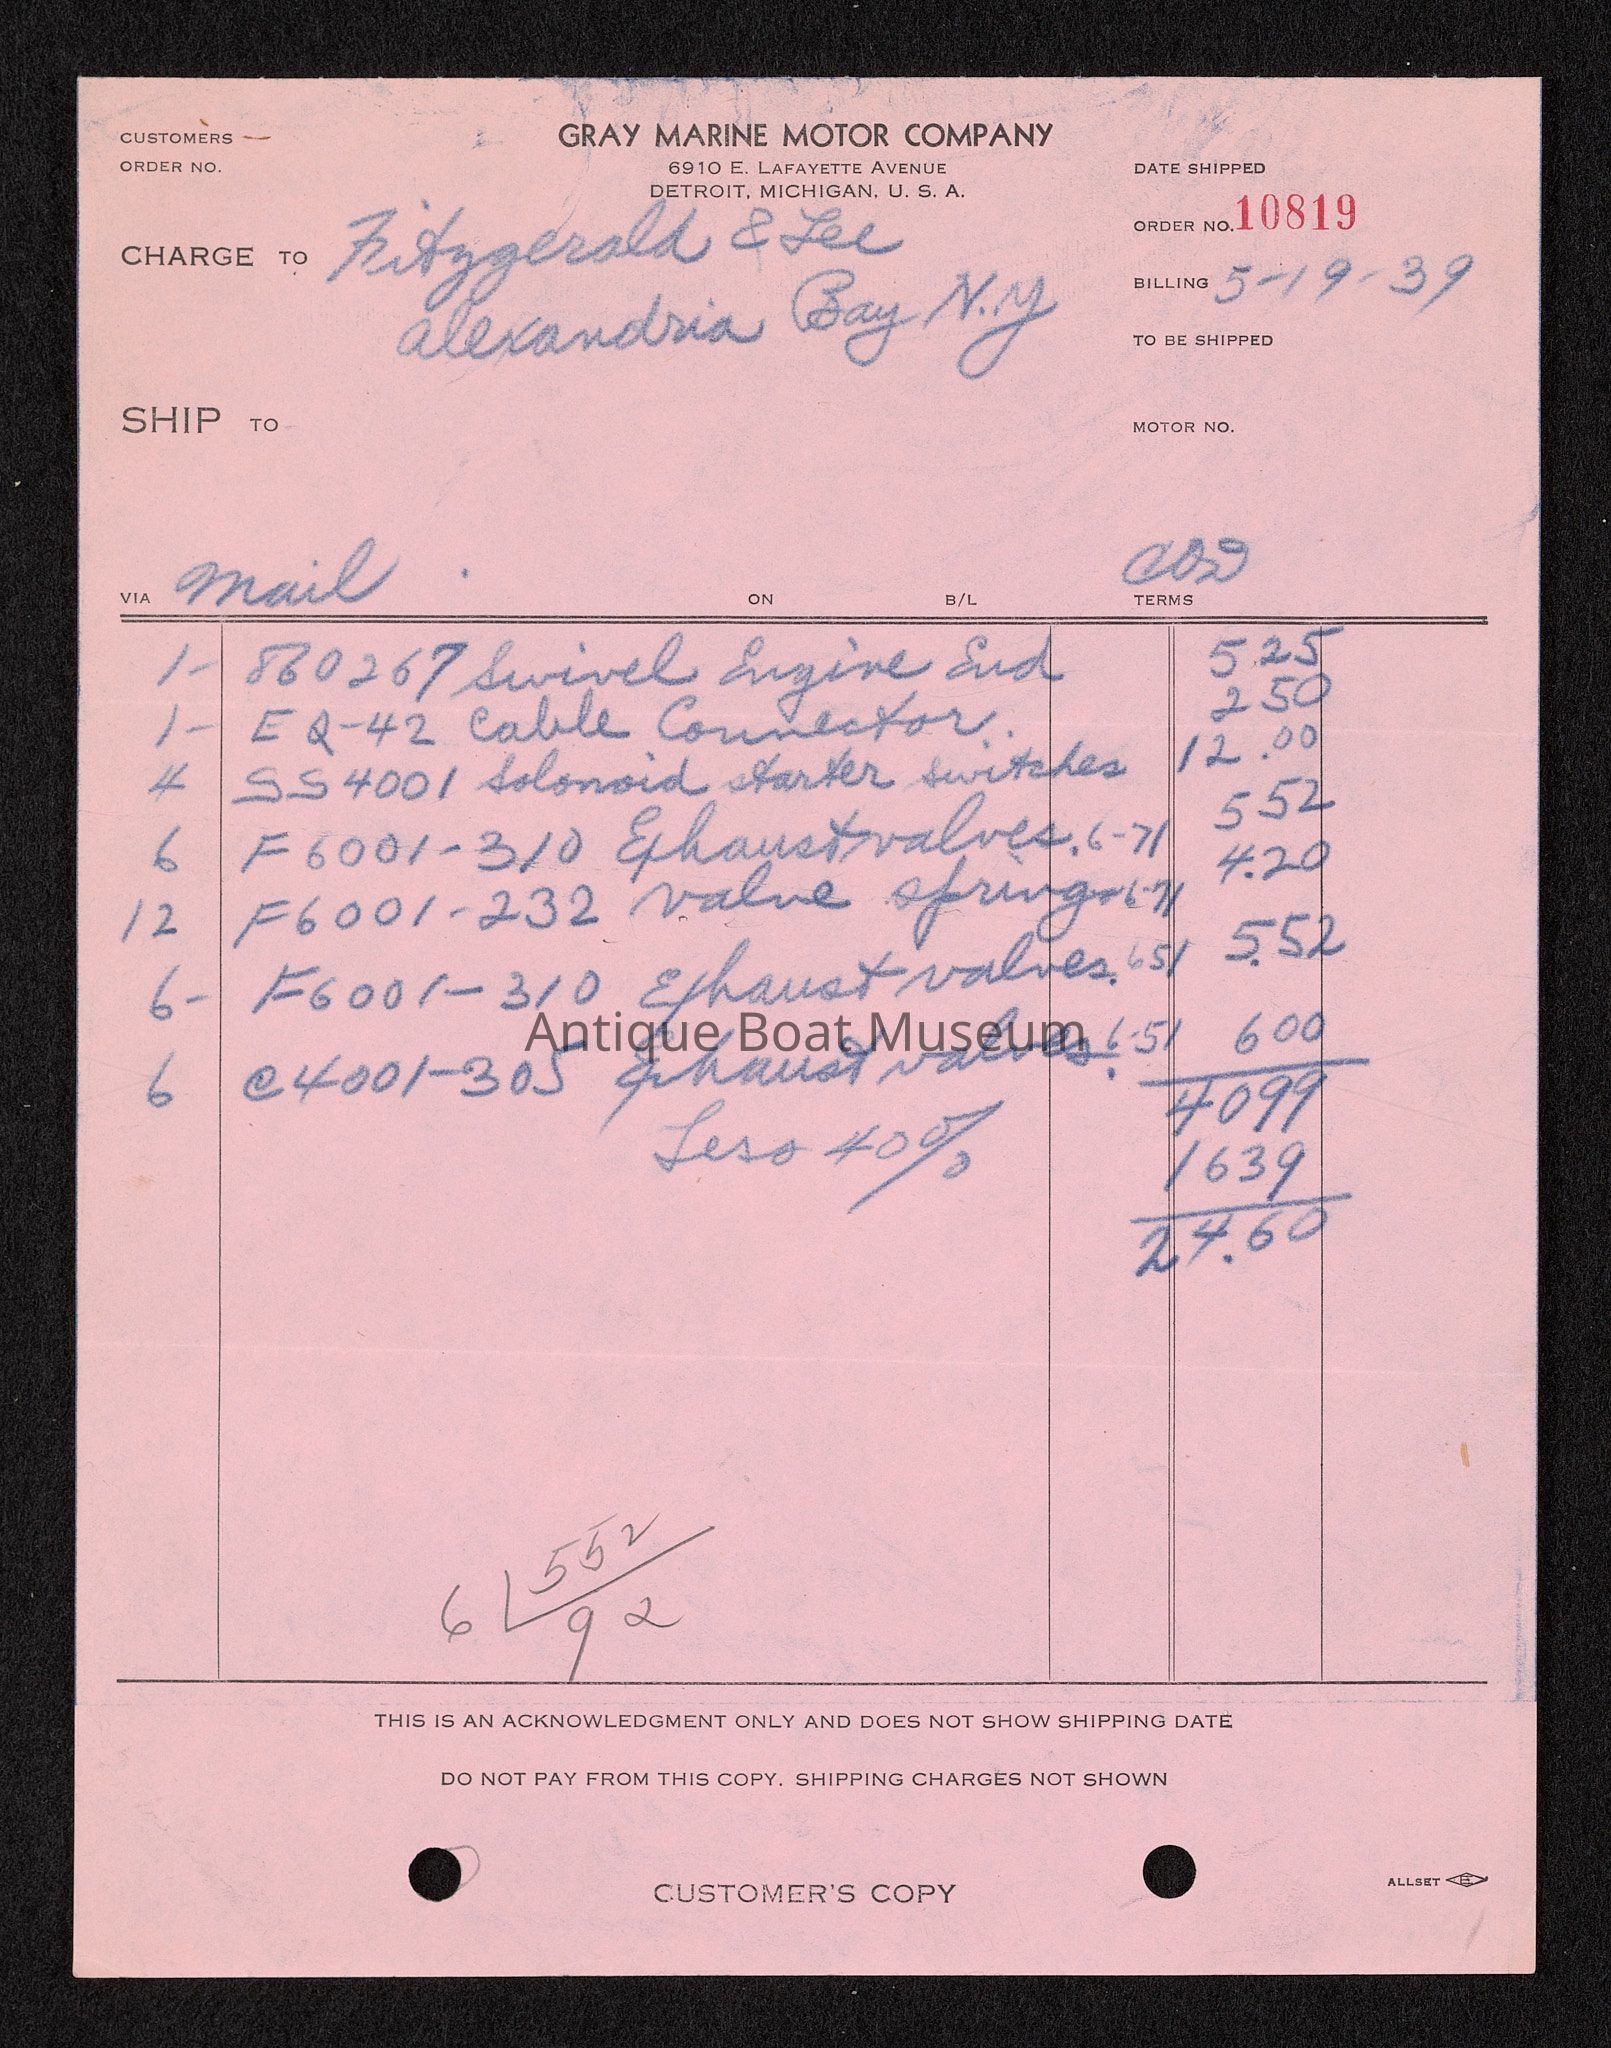 CUSTOMERS
ORDER NO.
GRAY MARINE MOTOR COMPANY
6910 E. LAFAYETTE AVENUE
DETROIT, MICHIGAN, U. S. A.
DATE SHIPPED
ORDER NO. 10819
CHARGE TO Fitzgerald & Lee
Alexandria Bay N.Y
BILLING 5-19-39
TO BE SHIPPED
SHIP TO
MOTOR NO.
VIA Mail
ON
B/L
TERMS COD
1- 860267 Swivel Engine End 5.25
1- EQ-42 Cable Connector. 2 50
4 SS4001 Solonoid starter switches 12.00
6 F6001-310 Exhaust valves. 6-71 5 52
12 F6001-232 valve springs 6-71 4.20
6- F6001-310 Exhaust valves. 651 5.52
6 C4001-305 Exhaust valves. 6-51 6 00
4099
Less 40% 1639
24.60
Antique Boat Museum
6 552
92
THIS IS AN ACKNOWLEDGMENT ONLY AND DOES NOT SHOW SHIPPING DATE
DO NOT PAY FROM THIS COPY. SHIPPING CHARGES NOT SHOWN
CUSTOMER'S COPY
ALLSET E